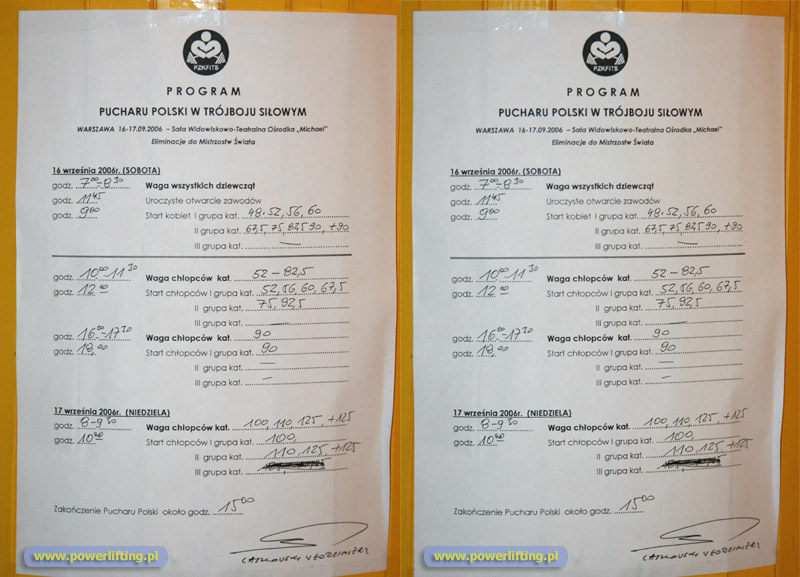 PZKFiTS
PROGRAM
PUCHARU POLSKI W TRÓJBOJU SIŁOWYM
WARSZAWA 16-17.09.2006 – Sala Widowiskowo-Teatralna Ośrodka „Michael”
Eliminacje do Mistrzostw Świata
16 września 2006r. (SOBOTA)
godz. 7⁰⁰-8³⁰ Waga wszystkich dziewcząt
godz. 11⁴⁵ Uroczyste otwarcie zawodów
godz. 9⁰⁰ Start kobiet I grupa kat. 48, 52, 56, 60
II grupa kat. 67,5, 75, 82,5 90, +90
III grupa kat. —
godz. 10⁰⁰-11³⁰ Waga chłopców kat. 52 – 82,5
godz. 12⁰⁰ Start chłopców I grupa kat. 52, 56, 60, 67,5
II grupa kat. 75, 82,5
III grupa kat. —
godz. 16⁰⁰-17³⁰ Waga chłopców kat. 90
godz. 18,⁰⁰ Start chłopców I grupa kat. 90
II grupa kat. —
III grupa kat. —
17 września 2006r. (NIEDZIELA)
godz. 8-9³⁰ Waga chłopców kat. 100, 110, 125, +125
godz. 10⁰⁰ Start chłopców I grupa kat. 100,
II grupa kat. 110, 125, +125
III grupa kat.
Zakończenie Pucharu Polski około godz. 15⁰⁰
WŁODZIMIERZ
www.powerlifting.pl
PZKFiTS
PROGRAM
PUCHARU POLSKI W TRÓJBOJU SIŁOWYM
WARSZAWA 16-17.09.2006 – Sala Widowiskowo-Teatralna Ośrodka „Michael”
Eliminacje do Mistrzostw Świata
16 września 2006r. (SOBOTA)
godz. 7⁰⁰-8³⁰ Waga wszystkich dziewcząt
godz. 11⁴⁵ Uroczyste otwarcie zawodów
godz. 9⁰⁰ Start kobiet I grupa kat. 48, 52, 56, 60
II grupa kat. 67,5, 75, 82,5 90, +90
III grupa kat. —
godz. 10⁰⁰-11³⁰ Waga chłopców kat. 52 – 82,5
godz. 12⁰⁰ Start chłopców I grupa kat. 52, 56, 60, 67,5
II grupa kat. 75, 82,5
III grupa kat. —
godz. 16⁰⁰-17³⁰ Waga chłopców kat. 90
godz. 18,⁰⁰ Start chłopców I grupa kat. 90
II grupa kat. —
III grupa kat. —
17 września 2006r. (NIEDZIELA)
godz. 8-9³⁰ Waga chłopców kat. 100, 110, 125, +125
godz. 10⁰⁰ Start chłopców I grupa kat. 100,
II grupa kat. 110, 125, +125
III grupa kat.
Zakończenie Pucharu Polski około godz. 15⁰⁰
WŁODZIMIERZ
www.powerlifting.pl